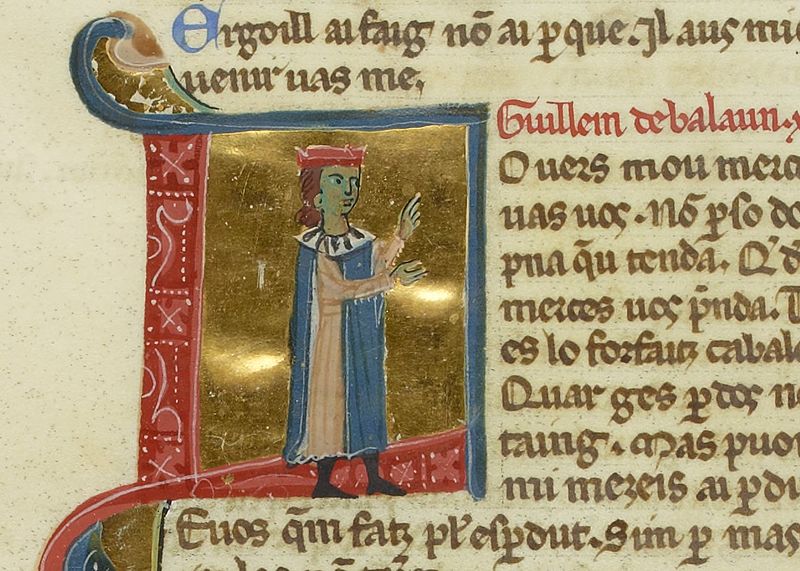 Ergoill ai faig nõ ai ꝑque. Jl aus mi
uenir uas me,
Guillem de balaun.
Ouers mou merce
uas uos. Nõ ꝑso do
pna q̃u tenda. Q'd
merces uos p̃nda.
es lo forfaitz cabal
Quar ges ꝑdos n
taing. Mas puoi
mi mezeis ai ꝑdu
Euos q̃m fatz pl'esꝑdut. Sim ꝑ mas